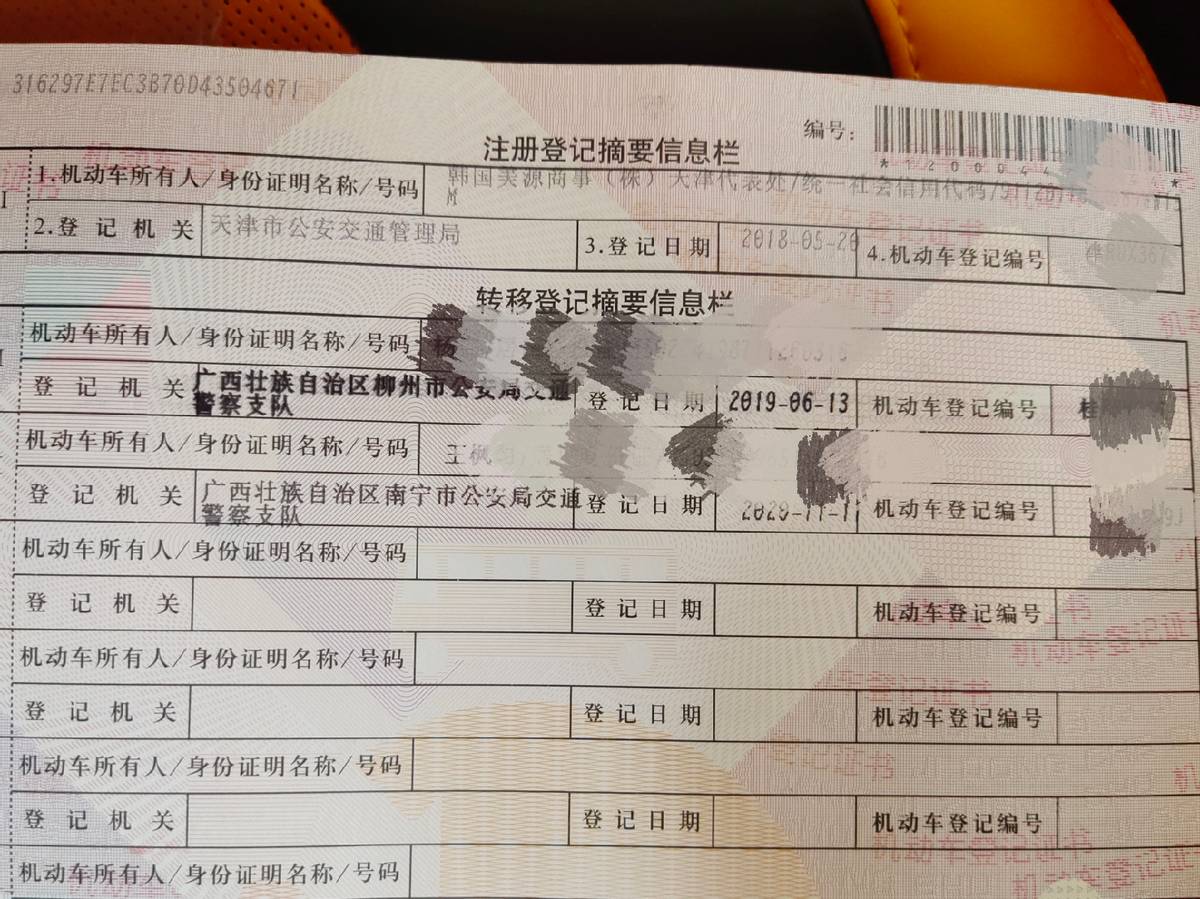 316297E7EC3B70D43504671
编号:
*1200044
注册登记摘要信息栏
1.机动车所有人/身份证明名称/号码 韩国美源商事(株)天津代表处/统一社会信用代码/
2.登记机关 天津市公安交通管理局 3.登记日期 2018-05-20 4.机动车登记编号
转移登记摘要信息栏
机动车所有人/身份证明名称/号码 杨
登记机关 广西壮族自治区柳州市公安局交通警察支队 登记日期 2019-06-13 机动车登记编号 桂
机动车所有人/身份证明名称/号码 王枫
登记机关 广西壮族自治区南宁市公安局交通警察支队 登记日期 2020-11-11 机动车登记编号
机动车所有人/身份证明名称/号码
登记机关 登记日期 机动车登记编号
机动车所有人/身份证明名称/号码
登记机关 登记日期 机动车登记编号
机动车所有人/身份证明名称/号码
登记机关 登记日期 机动车登记编号
机动车所有人/身份证明名称/号码